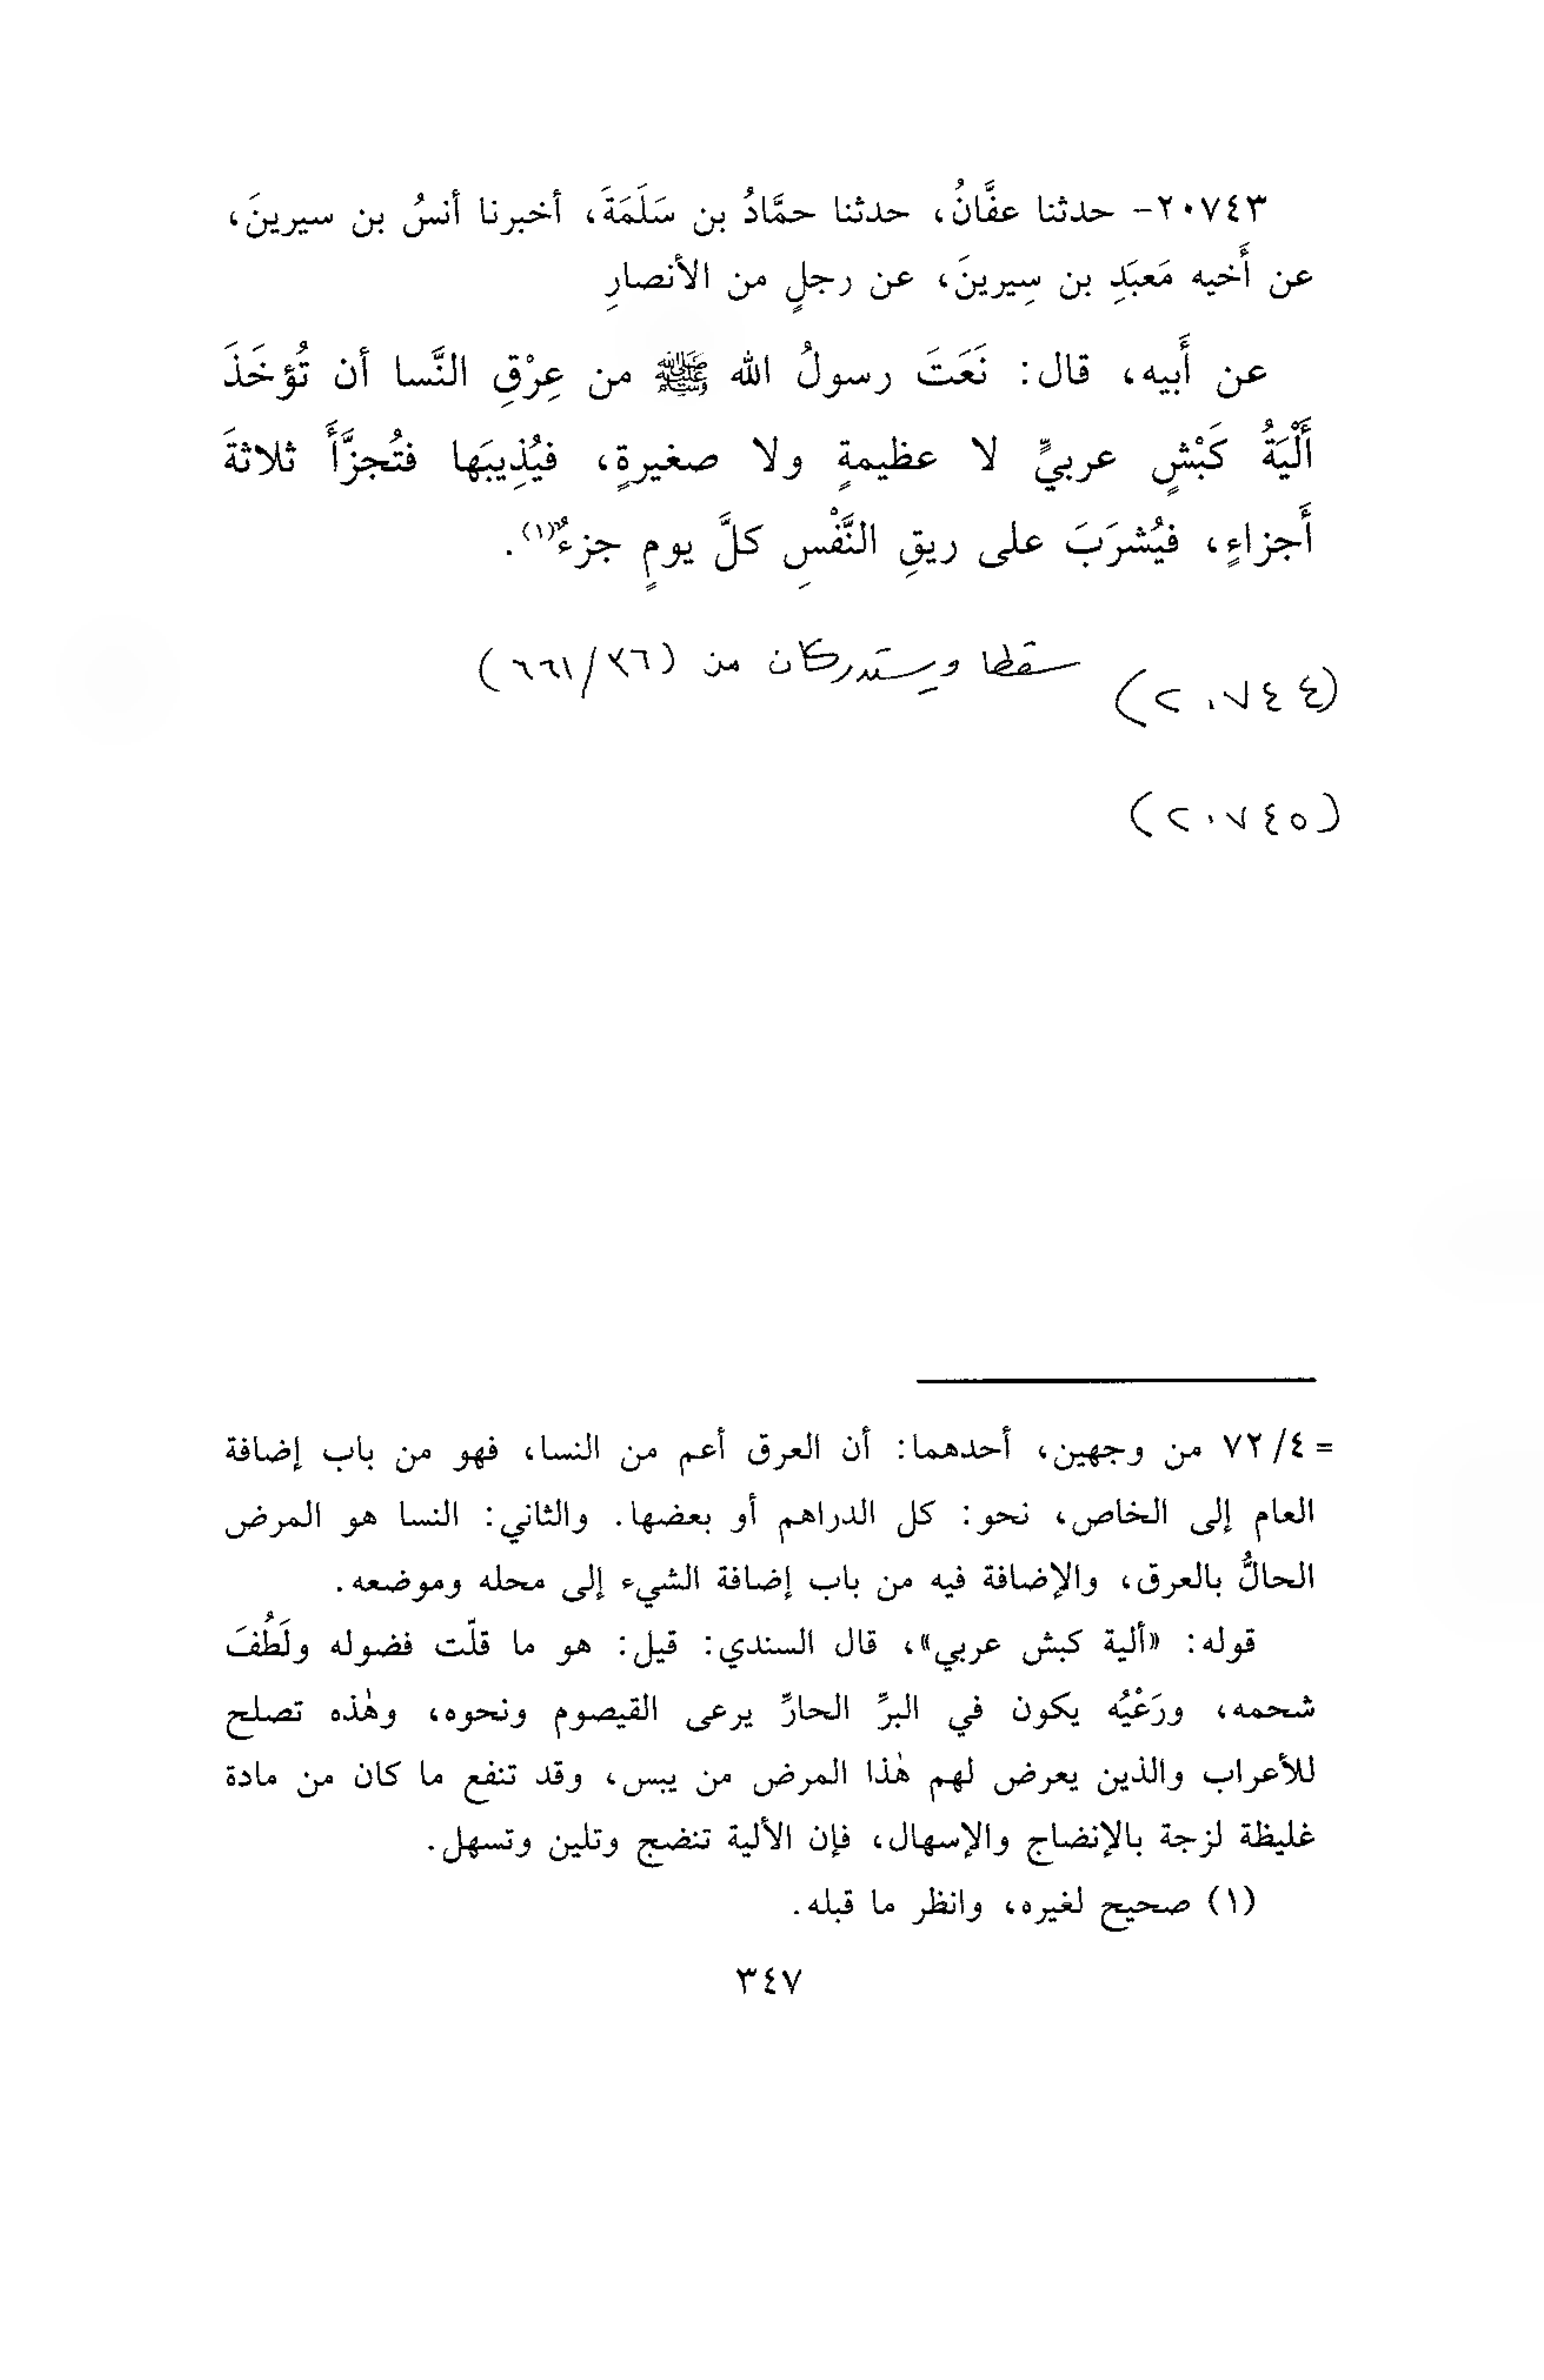 ٢٠٧٤٣- حدثنا عفَّانُ، حدثنا حمَّادُ بن سَلَمَةَ، أخبرنا أنسُ بن سيرينَ،
عن أَخيه مَعبَدِ بن سِيرينَ، عن رجلٍ من الأنصارِ
عن أَبيه، قال: نَعَتَ رسولُ الله ﷺ من عِرْقِ النَّسا أن تُؤخَذَ
أَلْيَةُ كَبْشٍ عربيٍّ لا عظيمةٍ ولا صغيرةٍ، فيُذِيبَها فتُجزَّأَ ثلاثةَ
أَجزاءٍ، فيُشرَبَ على ريقِ النَّفْسِ كلَّ يومٍ جزءٌ(١).
(٢٠٧٤٤) سقطا ويستدركان من (٣٦/٦٦١)
(٢٠٧٤٥)
= ٧٢/٤ من وجهين، أحدهما: أن العرق أعم من النسا، فهو من باب إضافة
العام إلى الخاص، نحو: كل الدراهم أو بعضها. والثاني: النسا هو المرض
الحالُّ بالعرق، والإضافة فيه من باب إضافة الشيء إلى محله وموضعه.
قوله: «ألية كبش عربي»، قال السندي: قيل: هو ما قلّت فضوله ولَطُفَ
شحمه، ورَعْيُه يكون في البرِّ الحارِّ يرعى القيصوم ونحوه، وهٰذه تصلح
للأعراب والذين يعرض لهم هٰذا المرض من يبس، وقد تنفع ما كان من مادة
غليظة لزجة بالإنضاج والإسهال، فإن الألية تنضج وتلين وتسهل.
(١) صحيح لغيره، وانظر ما قبله.
٣٤٧